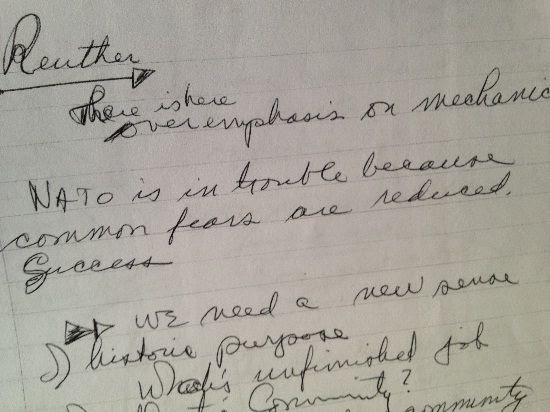 Reuther
There is here
overemphasis on mechanic
NATO is in trouble because
common fears are reduced.
Success
We need a new sense
historic purpose
What's unfinished job
Community?
community